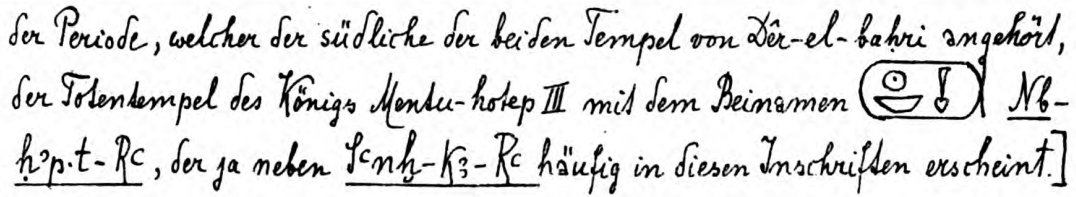 der Periode, welcher der südliche der beiden Tempel von Dêr-el-baḥri angehört,
der Totentempel des Königs Mentu-hotep III mit dem Beinamen Nb-
ḥꜣp.t-Rꜥ, der ja neben Sꜥnḫ-Kꜣ-Rꜥ häufig in diesen Inschriften erscheint.]